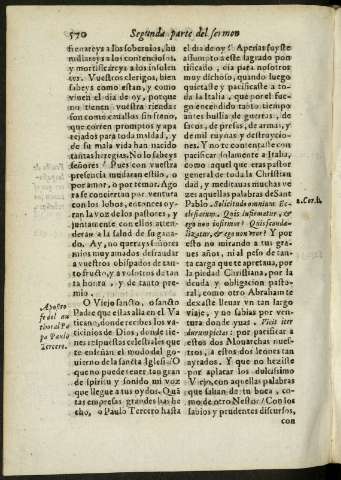 570 Segunda parte del sermon
frenareys a los soberuios, hu
millareys a los contenciosos,
y mortificareys a los insolen
tes. Vuestros clerigos, bien
sabeys como estan, y como
viuen el dia de oy, porque
no tienen vuestra rienda:
son como cauallos sin freno,
que corren promptos y apa
rejados para toda maldad, y
de su mala vida han nacido
tantas heregias. No lo sabeys
señores? Pues con vuestra
presencia mudaràn estilo, o
por amor, o por temor. Ago
ra se conciertan por ventura
con los lobos, entonces oy-
ran la voz de los pastores, y
juntamente con ellos atten-
deràn a la salud de su gana-
do. Ay, no querays señores
mios muy amados desfraudar
a vuestros obispados de tan-
to fructo, y a vosotros de tan
ta honra, y de tanto pre-
mio.
Apostro
fe del au
thor al Pa
pa Paulo
Tercero.
O Viejo sancto, o sancto
Padre que estas alla en el Va
ticano, donde recibes los va-
ticinios de Dios, donde tie-
nes respuestas celestiales que
te enseñan el modo del go-
uierno de la sancta Iglesia! O
que no puede tener tan gran
de spiritu y sonido mi voz
que llegue a tus oydos. Quã
tas empresas grandes has he
cho, o Paulo Tercero hasta
el dia de oy! Apenas fuyste
assumpto a este sagrado pon
tificado, dia para nosotros
muy dichoso, quando luego
quietaste y pacificaste a to-
da la Italia, que por el fue-
go encendido tanto tiempo
antes bullia de guerras, de
sacos, de presas, de armas, y
de mil ruynas y destruycio-
nes. Y no te contentaste con
pacificar solamente a Italia,
como aquel que eras pastor
general de toda la Christian
dad, y meditauas muchas ve
zes aquellas palabras de Sant
Pablo. Solicitudo omnium Ec-
clesiarum. Quis infirmatur, &
ego non infirmor? Quis scanda-
lizatur, & ego non vror? Y por
2.Cor.11.
esto no mirando a tus gra-
ues años, ni al peso de tan-
ta carga que te apretaua, por
la piedad Christiana, por la
deuda y obligacion pasto-
ral, como otro Abraham te
dexaste lleuar vn tan largo
viaje, y no sabias por ven-
tura donde yuas. Vicit iter
durum pietas: por pacificar a
estos dos Monarchas nues-
tros, a estos dos leones tan
ayrados. Y que no heziste
por aplacar los dulcissimo
Viejo, con aquellas palabras
que salian de tu boca, co-
mo de otro Nestor? Con los
sabios y prudentes discursos,
con